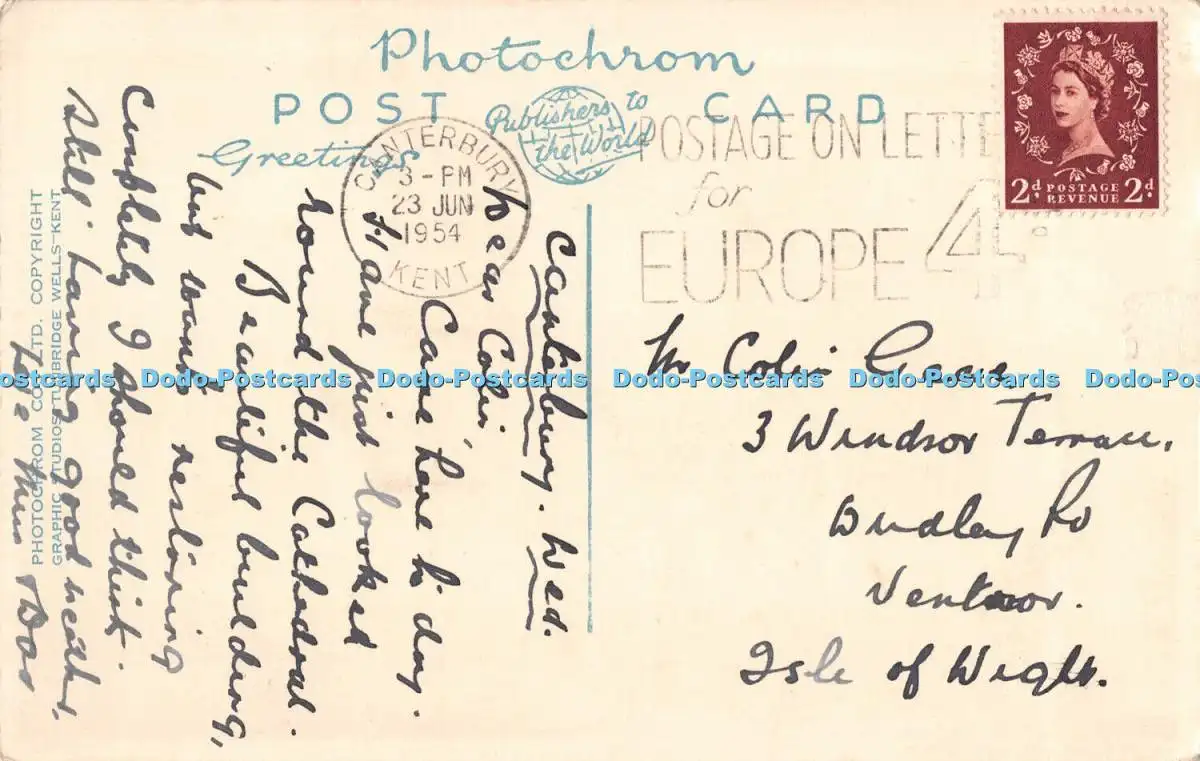 Photochrom
POST CARD
Publishers to
the World
Greetings
CANTERBURY
3 - PM
23 JUN
1954
KENT
POSTAGE ON LETTE
for
EUROPE 4
2d POSTAGE 2d
REVENUE
Canterbury. Wed.
Dear Colin,
Came here to day.
Have just looked
round the Cathedral.
Beautiful building,
but wants restoring
Completely I should think.
Still having good weather,
Love Mum
Mr Colin
3 Windsor Terrace,
Dudley Rd
Ventnor.
Isle of Wight.
PHOTOCHROM CO. LTD. COPYRIGHT
GRAPHIC STUDIOS TUNBRIDGE WELLS KENT
Dodo-Postcards Dodo-Postcards Dodo-Postcards Dodo-Postcards Dodo-Postcards Dodo-Postcards